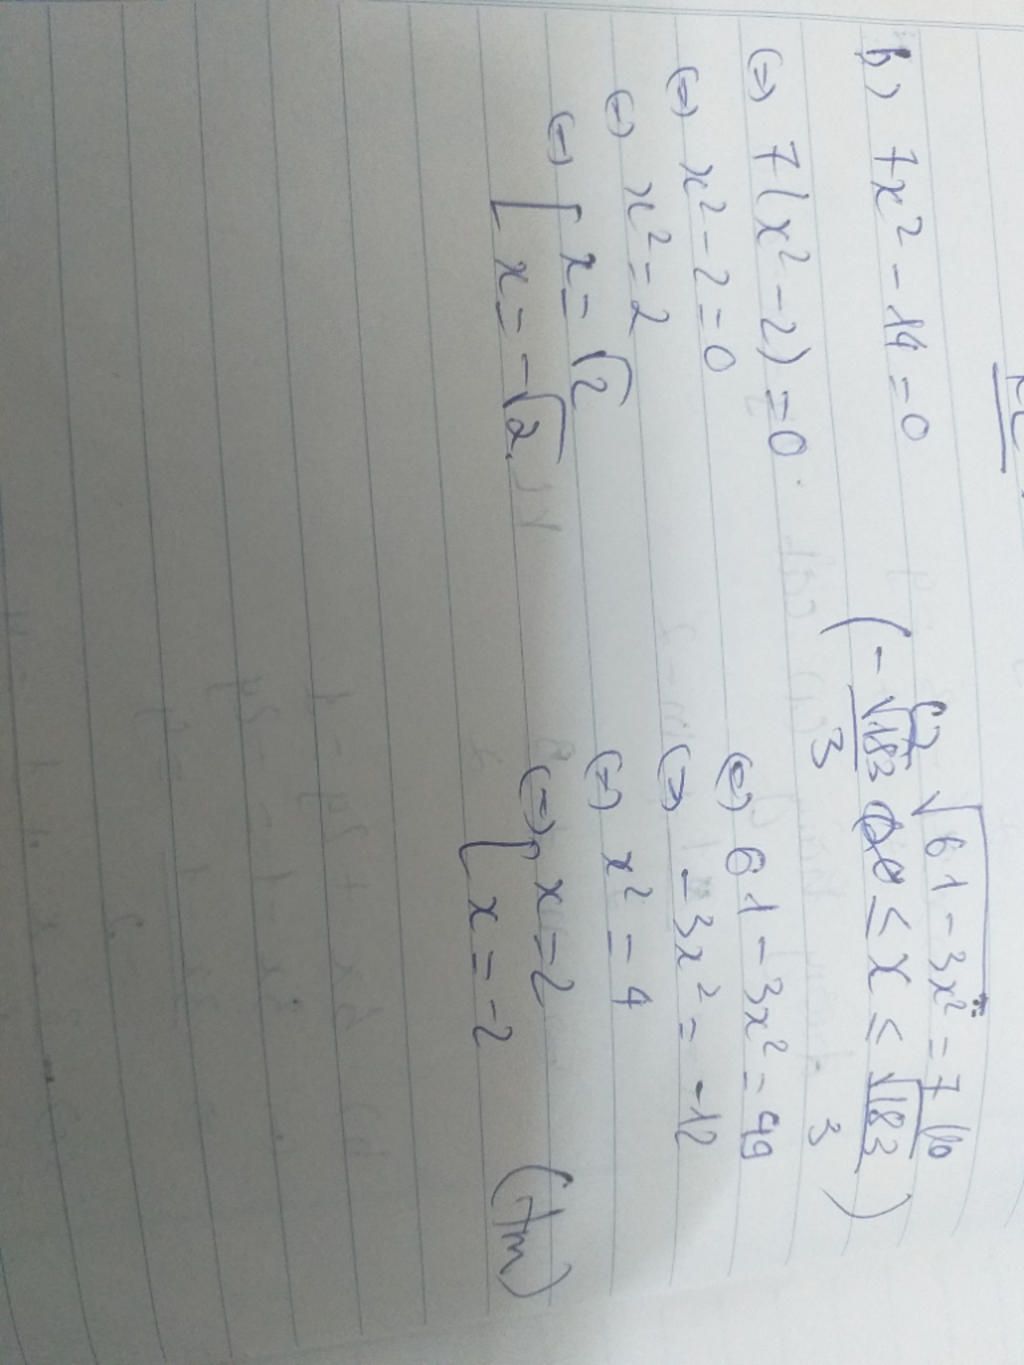 b) 7x² - 14 = 0
(=) 7(x² - 2) = 0
(=) x² - 2 = 0
(=) x² = 2
(=) [ x = √2
[ x = -√2
c) √(61 - 3x²) = 7
( -√183/3 ≤ x ≤ √183/3 )
(=) 61 - 3x² = 49
(=) -3x² = -12
(=) x² = 4
(=) [ x = 2
[ x = -2 (tm)